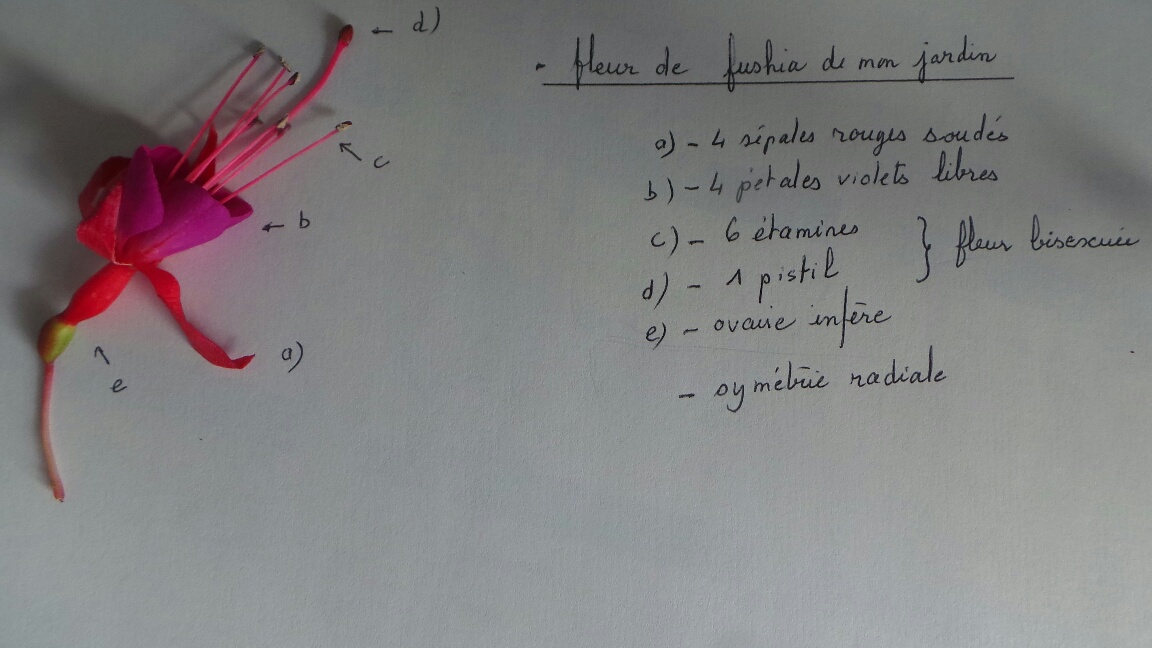 - fleur de fushia de mon jardin
a) - 4 sépales rouges soudés
b) - 4 pétales violets libres
c) - 6 étamines } fleur bisexuée
d) - 1 pistil
e) - ovaire infère
- symétrie radiale
d)
c
b
a)
e